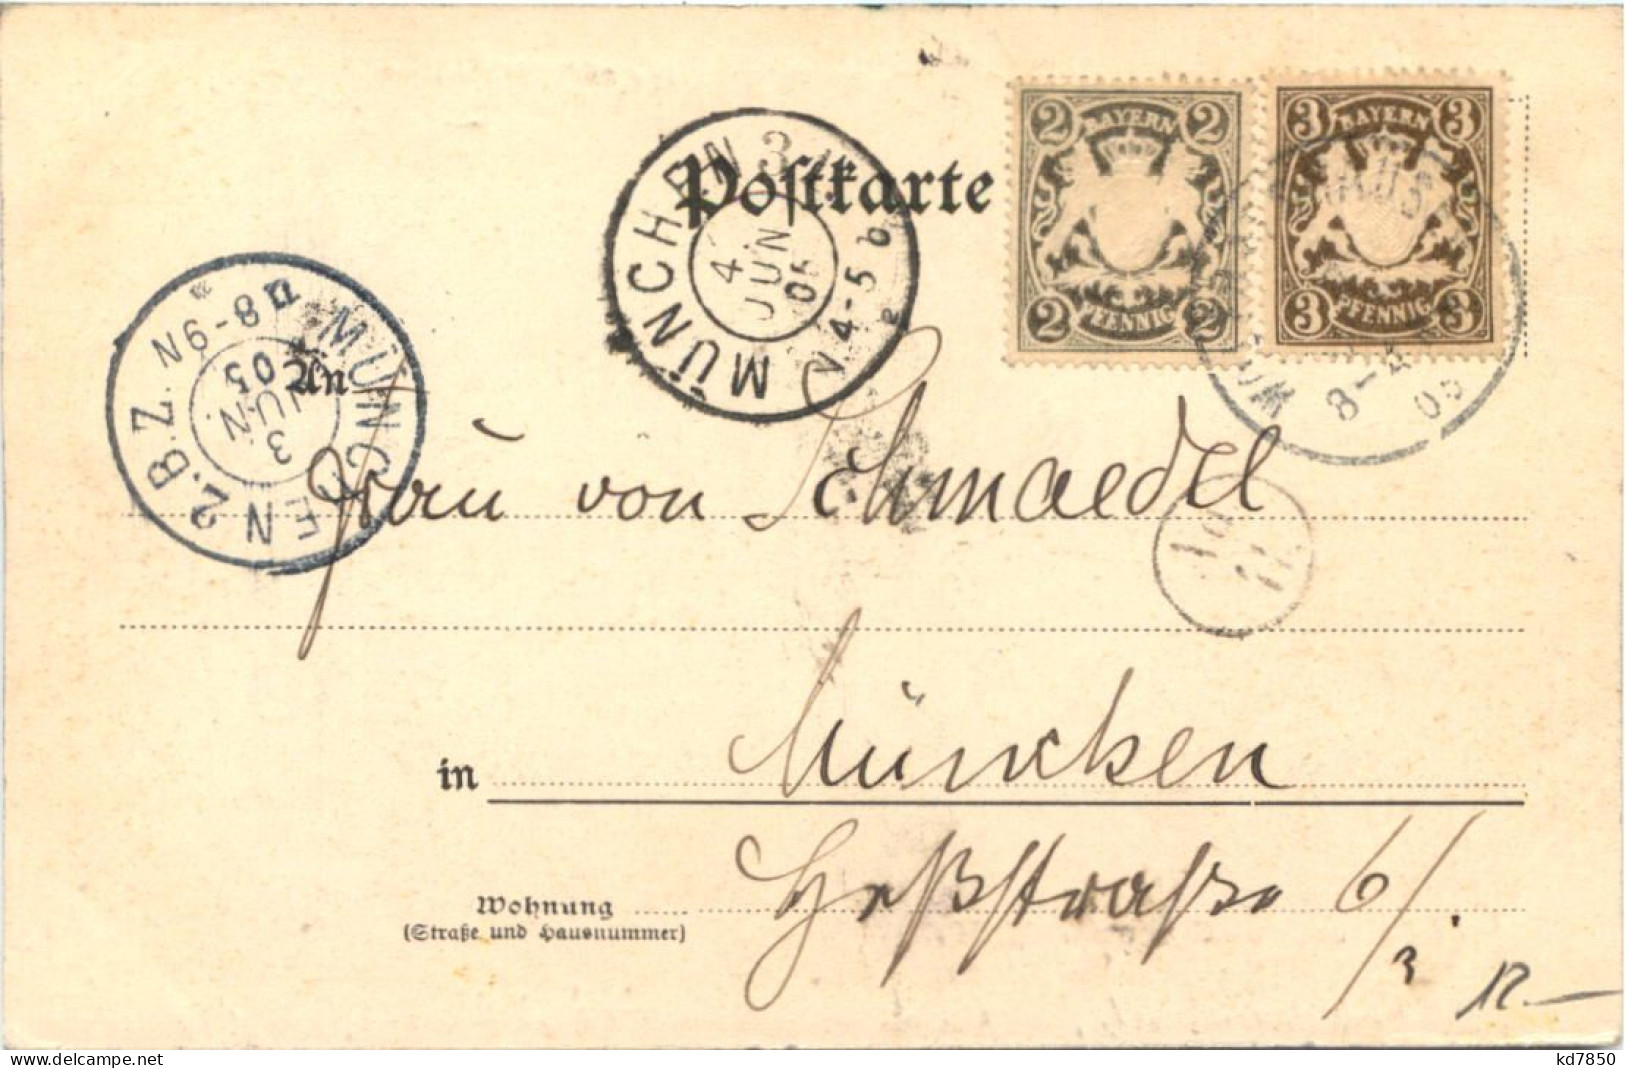 Postkarte
2 BAYERN 2
2 PFENNIG 2
3 BAYERN 3
3 PFENNIG 3
MÜNCHEN 3
4
JUN
05
V 4-5
MÜNCHEN 2. B.Z.
N 8-9
3
JUN
05
8-
05
An
Frau von Schmaedel
in München
Wohnung
(Straße und Hausnummer)
Heßstraße 6/3.
www.delcampe.net
kd7850